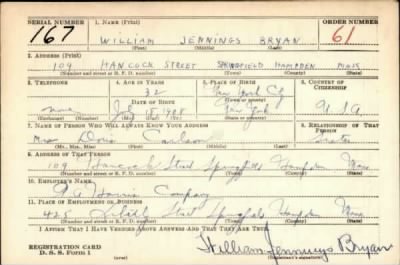 SERIAL NUMBER 1. NAME (Print) ORDER NUMBER
167 WILLIAM JENNINGS BRYAN 61
(First) (Middle) (Last)
2. ADDRESS (Print)
109 HANCOCK STREET SPRINGFIELD HAMPDEN MASS
(Number and street or R. F. D. number) (Town) (County) (State)
3. TELEPHONE 4. AGE IN YEARS 5. PLACE OF BIRTH 6. COUNTRY OF CITIZENSHIP
32 New York City
DATE OF BIRTH
none 1908 New York U.S.A.
7. NAME OF PERSON WHO WILL ALWAYS KNOW YOUR ADDRESS 8. RELATIONSHIP OF THAT PERSON
(Mr., Mrs., Miss) (First) (Middle) (Last)
9. ADDRESS OF THAT PERSON
109 Hancock Street Springfield Hampden Mass
(Number and street or R. F. D. number) (Town) (County) (State)
10. EMPLOYER'S NAME
Company
11. PLACE OF EMPLOYMENT OR BUSINESS
425 Street Springfield Hampden Mass
(Number and street or R. F. D. number) (Town) (County) (State)
I AFFIRM THAT I HAVE VERIFIED ABOVE ANSWERS AND THAT THEY ARE TRUE.
REGISTRATION CARD
D. S. S. Form 1 William Jennings Bryan
(over) (Registrant's signature)